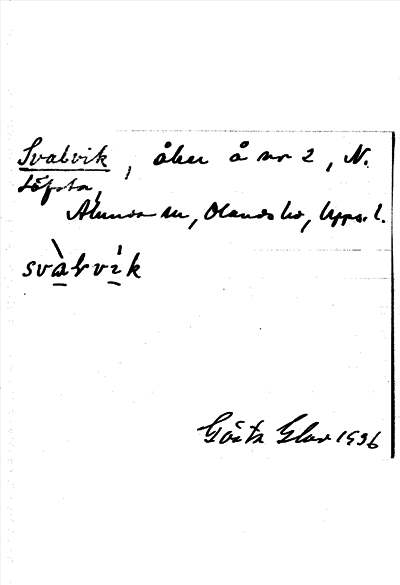 Svalvik, åker å nr 2, N.
Löfsta,
Alunda sn, Olands hd, Upps. l.
svàlvík
Gösta Glar 1936